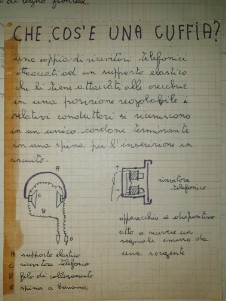 di legno
CHE COS'E UNA CUFFIA?
una coppia di ricevitori telefonici
attaccati ad un supporto elastico
che li tiene attaccati alle orecchie
in una posizione regolabile i
relativi conduttori si riuniscono
in un unico cordone terminante
in una spina per l'inserzione in
circuito.
ricevitore
telefonico
apparecchio o dispositivo
atto a ricevere un
segnale emesso da
una sorgente
A supporto elastico
C ricevitore telefonico
D filo di collegamento
E spina a banana